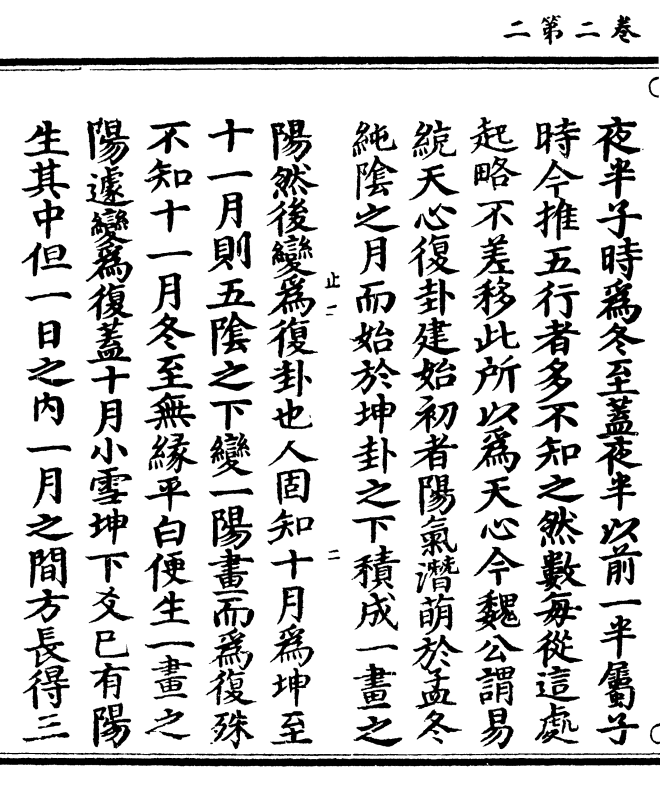 卷二第二
夜半子時爲冬至蓋夜半以前一半屬子
時今推五行者多不知之然數每從這處
起略不差移此所以爲天心今魏公謂易
統天心復卦建始初者陽氣潛萌於孟冬
純陰之月而始於坤卦之下積成一畫之
止一
二
陽然後變爲復卦也人固知十月爲坤至
十一月則五陰之下變一陽畫而爲復殊
不知十一月冬至無緣平白便生一畫之
陽遽變爲復蓋十月小雪坤下爻巳有陽
生其中但一日之內一月之間方長得三